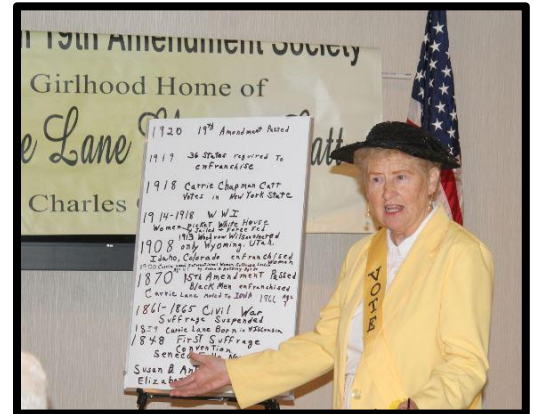 19th Amendment Society
Girlhood Home of
Lane
Charles
1920 19th Amendment Passed
1919 36 States required To
enfranchise
1918 Carrie Chapman Catt
Votes in New York State
1914-1918 WWI
Women Picket White House
Jailed & Force Fed
1913 Woodrow Wilson
1908 only Wyoming, Utah,
Idaho, Colorado enfranchised
Women
1870 15th Amendment Passed
Black Men enfranchised
Carrie Lane Moved to IOWA 1866 age
7
1861-1865 Civil War
Suffrage Suspended
1859 Carrie Lane Born in Wisconsin
1848 First Suffrage
Convention
Seneca Falls
Susan B
VOTE